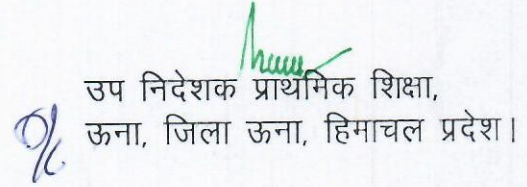 उप निदेशक प्राथमिक शिक्षा,
ऊना, जिला ऊना, हिमाचल प्रदेश।